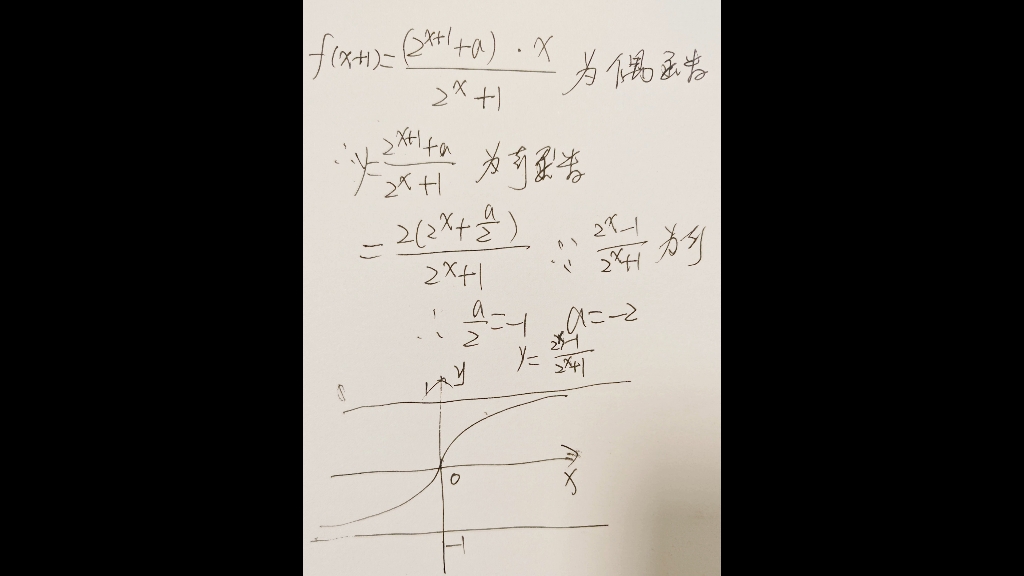 f(x+1)=\frac{(2^{x+1}+a)·x}{2^x+1} 为偶函数
∴y=\frac{2^{x+1}+a}{2^x+1} 为奇函数
=\frac{2(2^x+\frac{a}{2})}{2^x+1} ∵ \frac{2^x-1}{2^x+1} 为奇
∴ \frac{a}{2}=-1 a=-2
y=\frac{2^x-1}{2^x+1}
1 y
0 x
-1